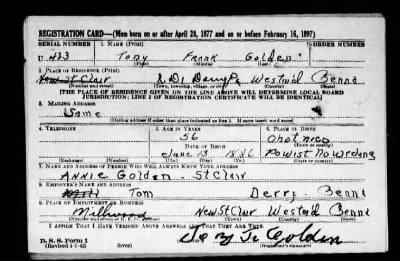 REGISTRATION CARD—(Men born on or after April 28, 1877 and on or before February 16, 1897)
SERIAL NUMBER 1. NAME (Print)
U 423 Tony Frank Golden
(First) (Middle) (Last)
2. PLACE OF RESIDENCE (Print)
New St Clair R.D1 Derry Pa Westmld Penna
(Number and street) (Town, township, village, or city) (County) (State)
[THE PLACE OF RESIDENCE GIVEN ON THE LINE ABOVE WILL DETERMINE LOCAL BOARD
JURISDICTION; LINE 2 OF REGISTRATION CERTIFICATE WILL BE IDENTICAL]
3. MAILING ADDRESS
Same
[Mailing address if other than place indicated on line 2. If same insert word same]
4. TELEPHONE 5. AGE IN YEARS 6. PLACE OF BIRTH
56
DATE OF BIRTH (Town or county)
June 13 1886
(Exchange) (Number) (Mo.) (Day) (Yr.) (State or country)
7. NAME AND ADDRESS OF PERSON WHO WILL ALWAYS KNOW YOUR ADDRESS
Annie Golden - St Clair
8. EMPLOYER'S NAME AND ADDRESS
Tom Derry. Penna
9. PLACE OF EMPLOYMENT OR BUSINESS
Millwood New St Clair Westmld Penna
(Number and street or R. F. D. number) (Town) (County) (State)
I AFFIRM THAT I HAVE VERIFIED ABOVE ANSWERS AND THAT THEY ARE TRUE.
D. S. S. Form 1
(Revised 4-1-42) (over) (Registrant's signature)
Golden